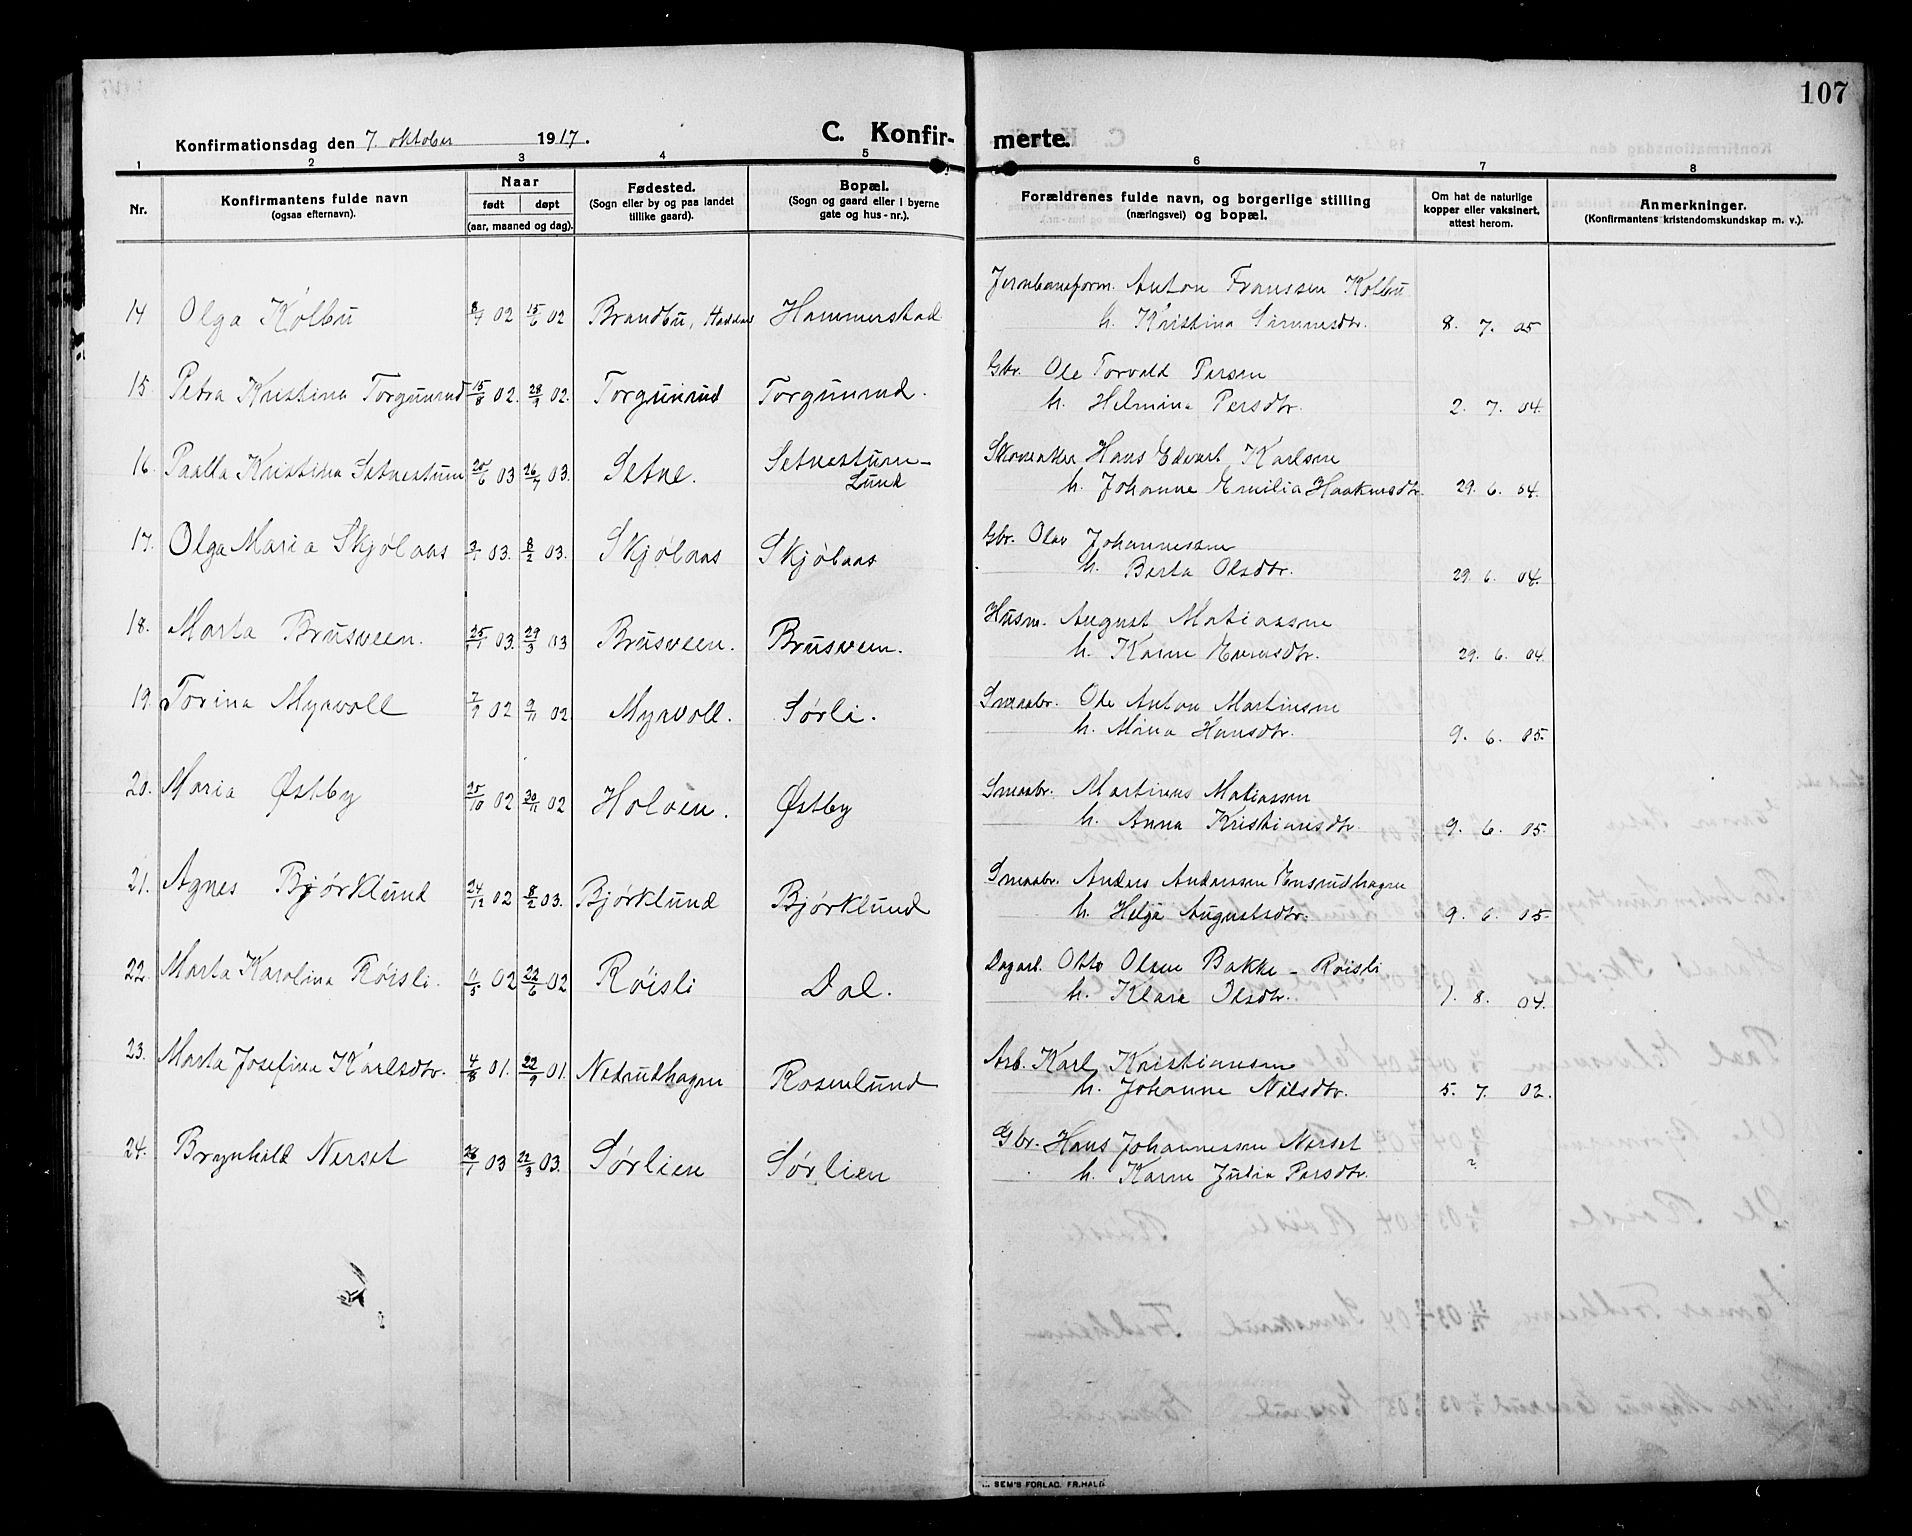 107
Konfirmationsdag den 7 oktober 1917. C. Konfirmerte.
1 2 3 4 5 6 7 8
Nr. Konfirmantens fulde navn (ogsaa efternavn). Naar født døpt (aar, maaned og dag). Fødested. (Sogn eller by og paa landet tillike gaard). Bopæl. (Sogn og gaard eller i byerne gate og hus-nr.). Forældrenes fulde navn, og borgerlige stilling (næringsvei) og bopæl. Om hat de naturlige kopper eller vaksinert, attest herom. Anmerkninger. (Konfirmantens kristendomskundskap m. v.).
Jernbaneform. Anton Franssen Kolbu
14 Olga Kolbu 8/7 02 15/6 02 Brandbu, Hammerstad h. Kristina Simensdtr. 8. 7. 05
Gbr. Ole Torvald Persen
15. Petra Kristina Torgunrud 15/8 02. 28/9 02. Torgunrud Torgunrud. h. Helmina Persdtr. 2. 7. 04.
Hans Edvart Karlsen
16. Paalla Kristina Setnestuen 20/6 03 26/7 03. Setne. Setnestuen-Lund h. Johanne Emilia Haakensdtr. 29. 6. 04.
Gbr. Olav Johannessen
17. Olga Maria Skjølaas 3/1 03. 8/2 03. Skjølaas Skjølaas h. Berta Olsdtr. 29. 6. 04.
Husm. August Matiassen
18. Marta Brusveen. 25/1 03. 29/3 03 Brusveen. Brusveen. h. Karen Evensdtr. 29. 6. 04.
Smaabr. Ole Anton Martinsen
19. Torina Myrvoll 7/9 02 9/11 02 Myrvoll. Sørli. h. Mina Hansdtr. 9. 6. 05.
Smaabr. Martinus Matiassen
20. Maria Østby 25/10 02 30/11 02 Holven. Østby h. Anna Kristiansdtr. 9. 6. 05.
Smaabr. Anders Anderssen Ensrudhagen
21. Agnes Bjørklund 24/12 02 8/2 03. Bjørklund Bjørklund h. Helga Augustsdtr. 9. 6. 05.
Dagarb. Otto Olsen Bakke - Røisli
22. Marta Karolina Røisli. 11/5 02 22/6 02 Røisli Dal. h. Klara Olsdtr. 1. 8. 04.
Arb. Karl Kristiansen
23. Marta Josefina Karlsdtr. 4/8 01. 22/9 01. Nedrudhagen Rosenlund h. Johanne Nilsdtr. 5. 7. 02.
Gbr. Hans Johannessen Nerset
24. Brynhild Nerset 26/1 03 22/3 03. Sørlien Sørlien h. Karen Julia Persdtr. ?
SEM'S FORLAG. FR.HALD